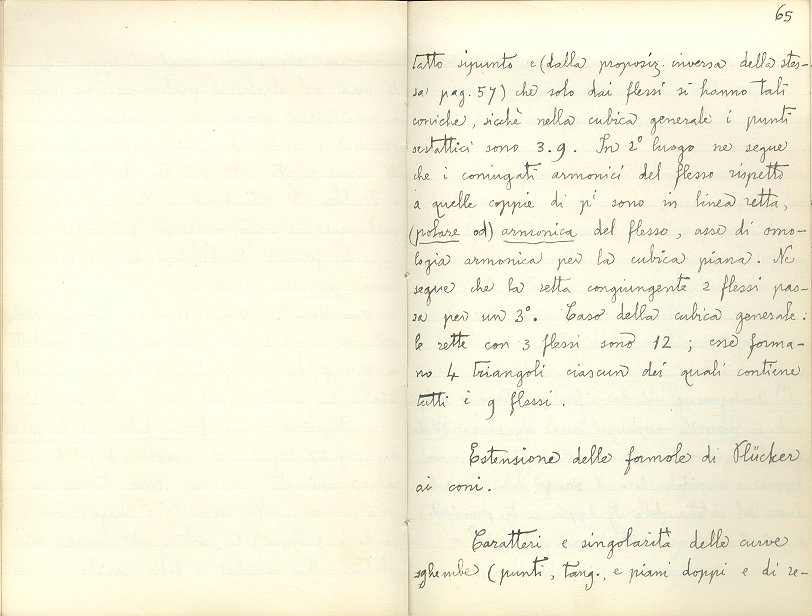 65
tatto sipunto e (dalla proposiz. inversa della stes-
sa pag. 57) che solo dai flessi si hanno tali
coniche, sicchè nella cubica generale i punti
sestattici sono 3.9. In 2° luogo ne segue
che i coniugati armonici del flesso rispetto
a quelle coppie di pⁱ sono in linea retta,
(polare od) armonica del flesso, asse di omo-
logia armonica per la cubica piana. Ne
segue che la retta congiungente 2 flessi pas-
sa per un 3°. Caso della cubica generale:
le rette con 3 flessi sono 12; esse forma-
no 4 triangoli ciascun dei quali contiene
tutti i 9 flessi.
Estensione delle formole di Plücker
ai coni.
Caratteri e singolarità delle curve
sghembe (punti, tang., e piani doppi e di re-